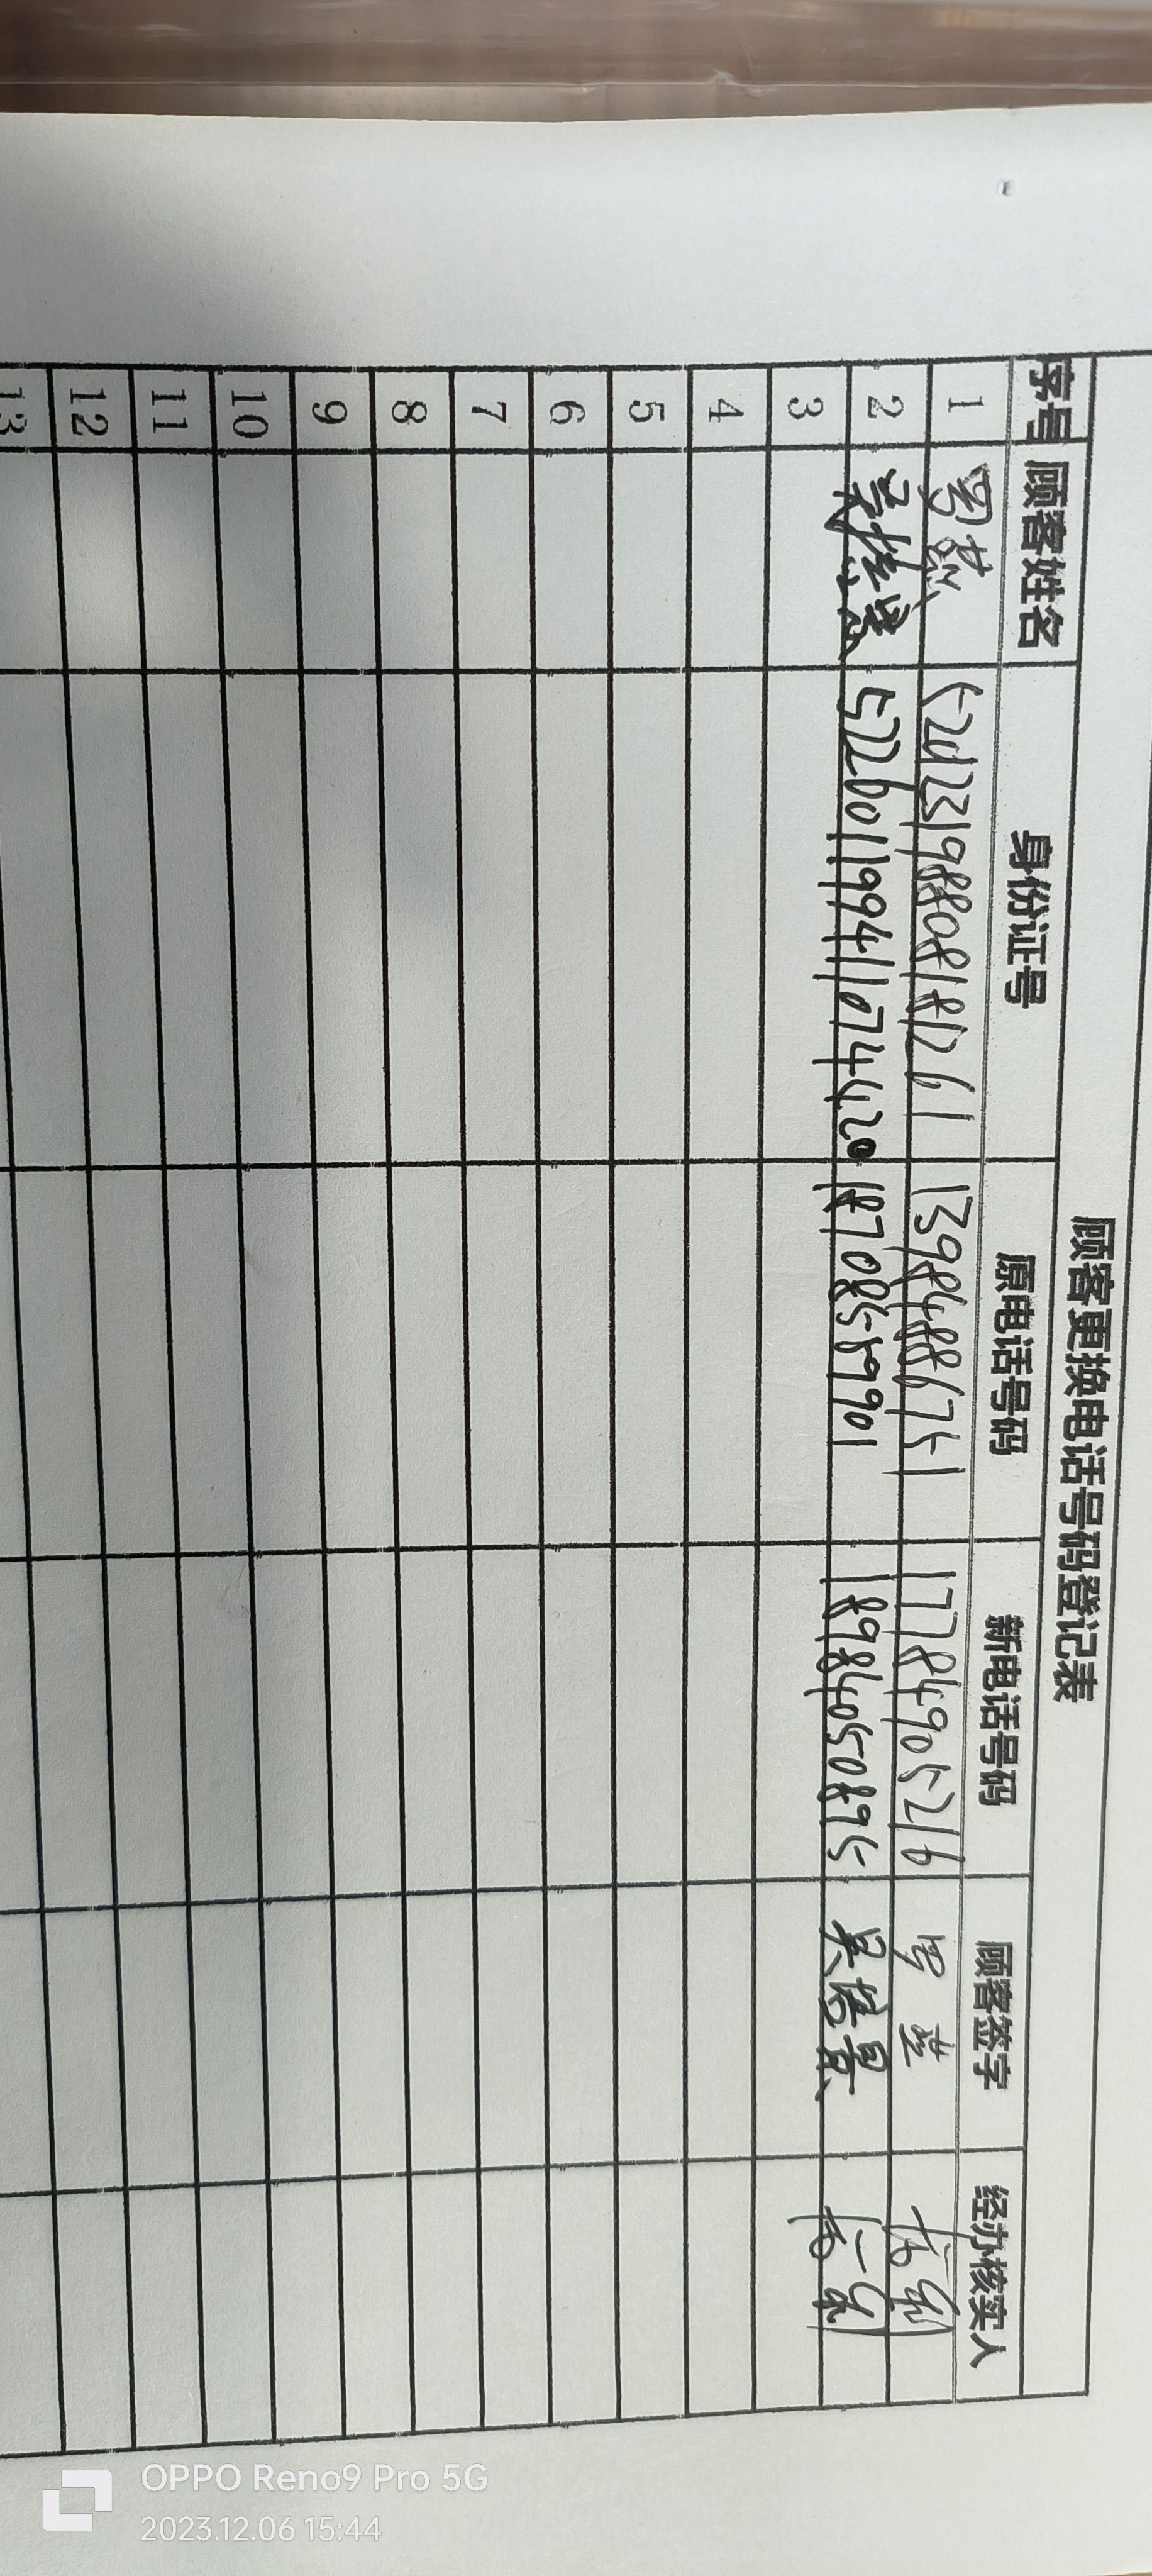 顾客更换电话号码登记表
序号 顾客姓名 身份证号 原电话号码 新电话号码 顾客签字 经办核实人
1 罗燕 13984886751 17784905216 罗燕
2 522601199411074420 18708589901 18984050895 吴境景
3
4
5
6
7
8
9
10
11
12
13
OPPO Reno9 Pro 5G
2023.12.06 15:44